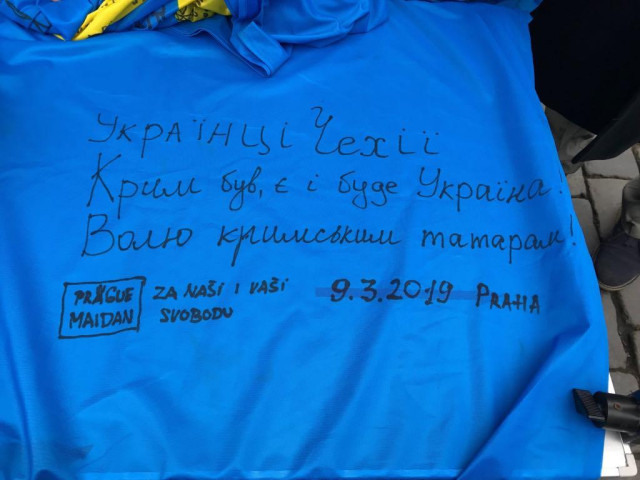 Українці Чехії
Крим був, є і буде Україна!
Волю кримським татарам!
PRAGUE MAIDAN
ZA NAŠI I VAŠI SVOBODU
9.3.2019 PRAHA